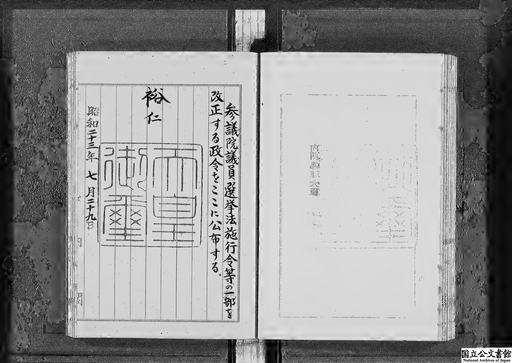 参議院議員選挙法施行令等の一部を
改正する政令をここに公布する。
裕仁
天皇
御璽
昭和二十三年 七月二十九日
国立公文書館
National Archives of Japan